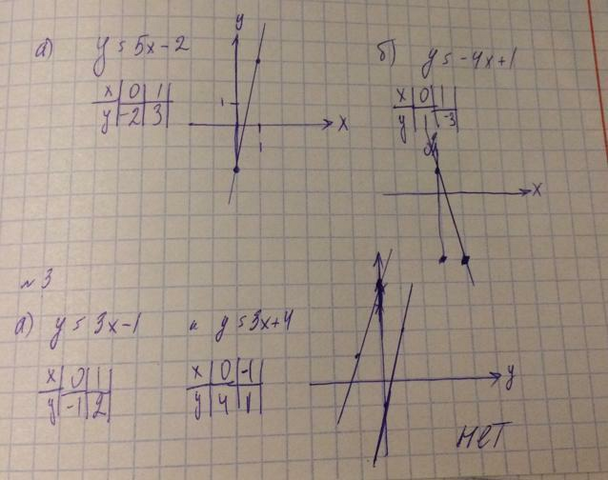 а) y = 5x - 2
x | 0 | 1
y | -2 | 3
y
1
x
1
б) y = -4x + 1
x | 0 | 1
y | 1 | -3
y
x
№3
а) y = 3x - 1 и y = 3x + 4
x | 0 | 1
y | -1 | 2
x | 0 | -1
y | 4 | 1
y
нет